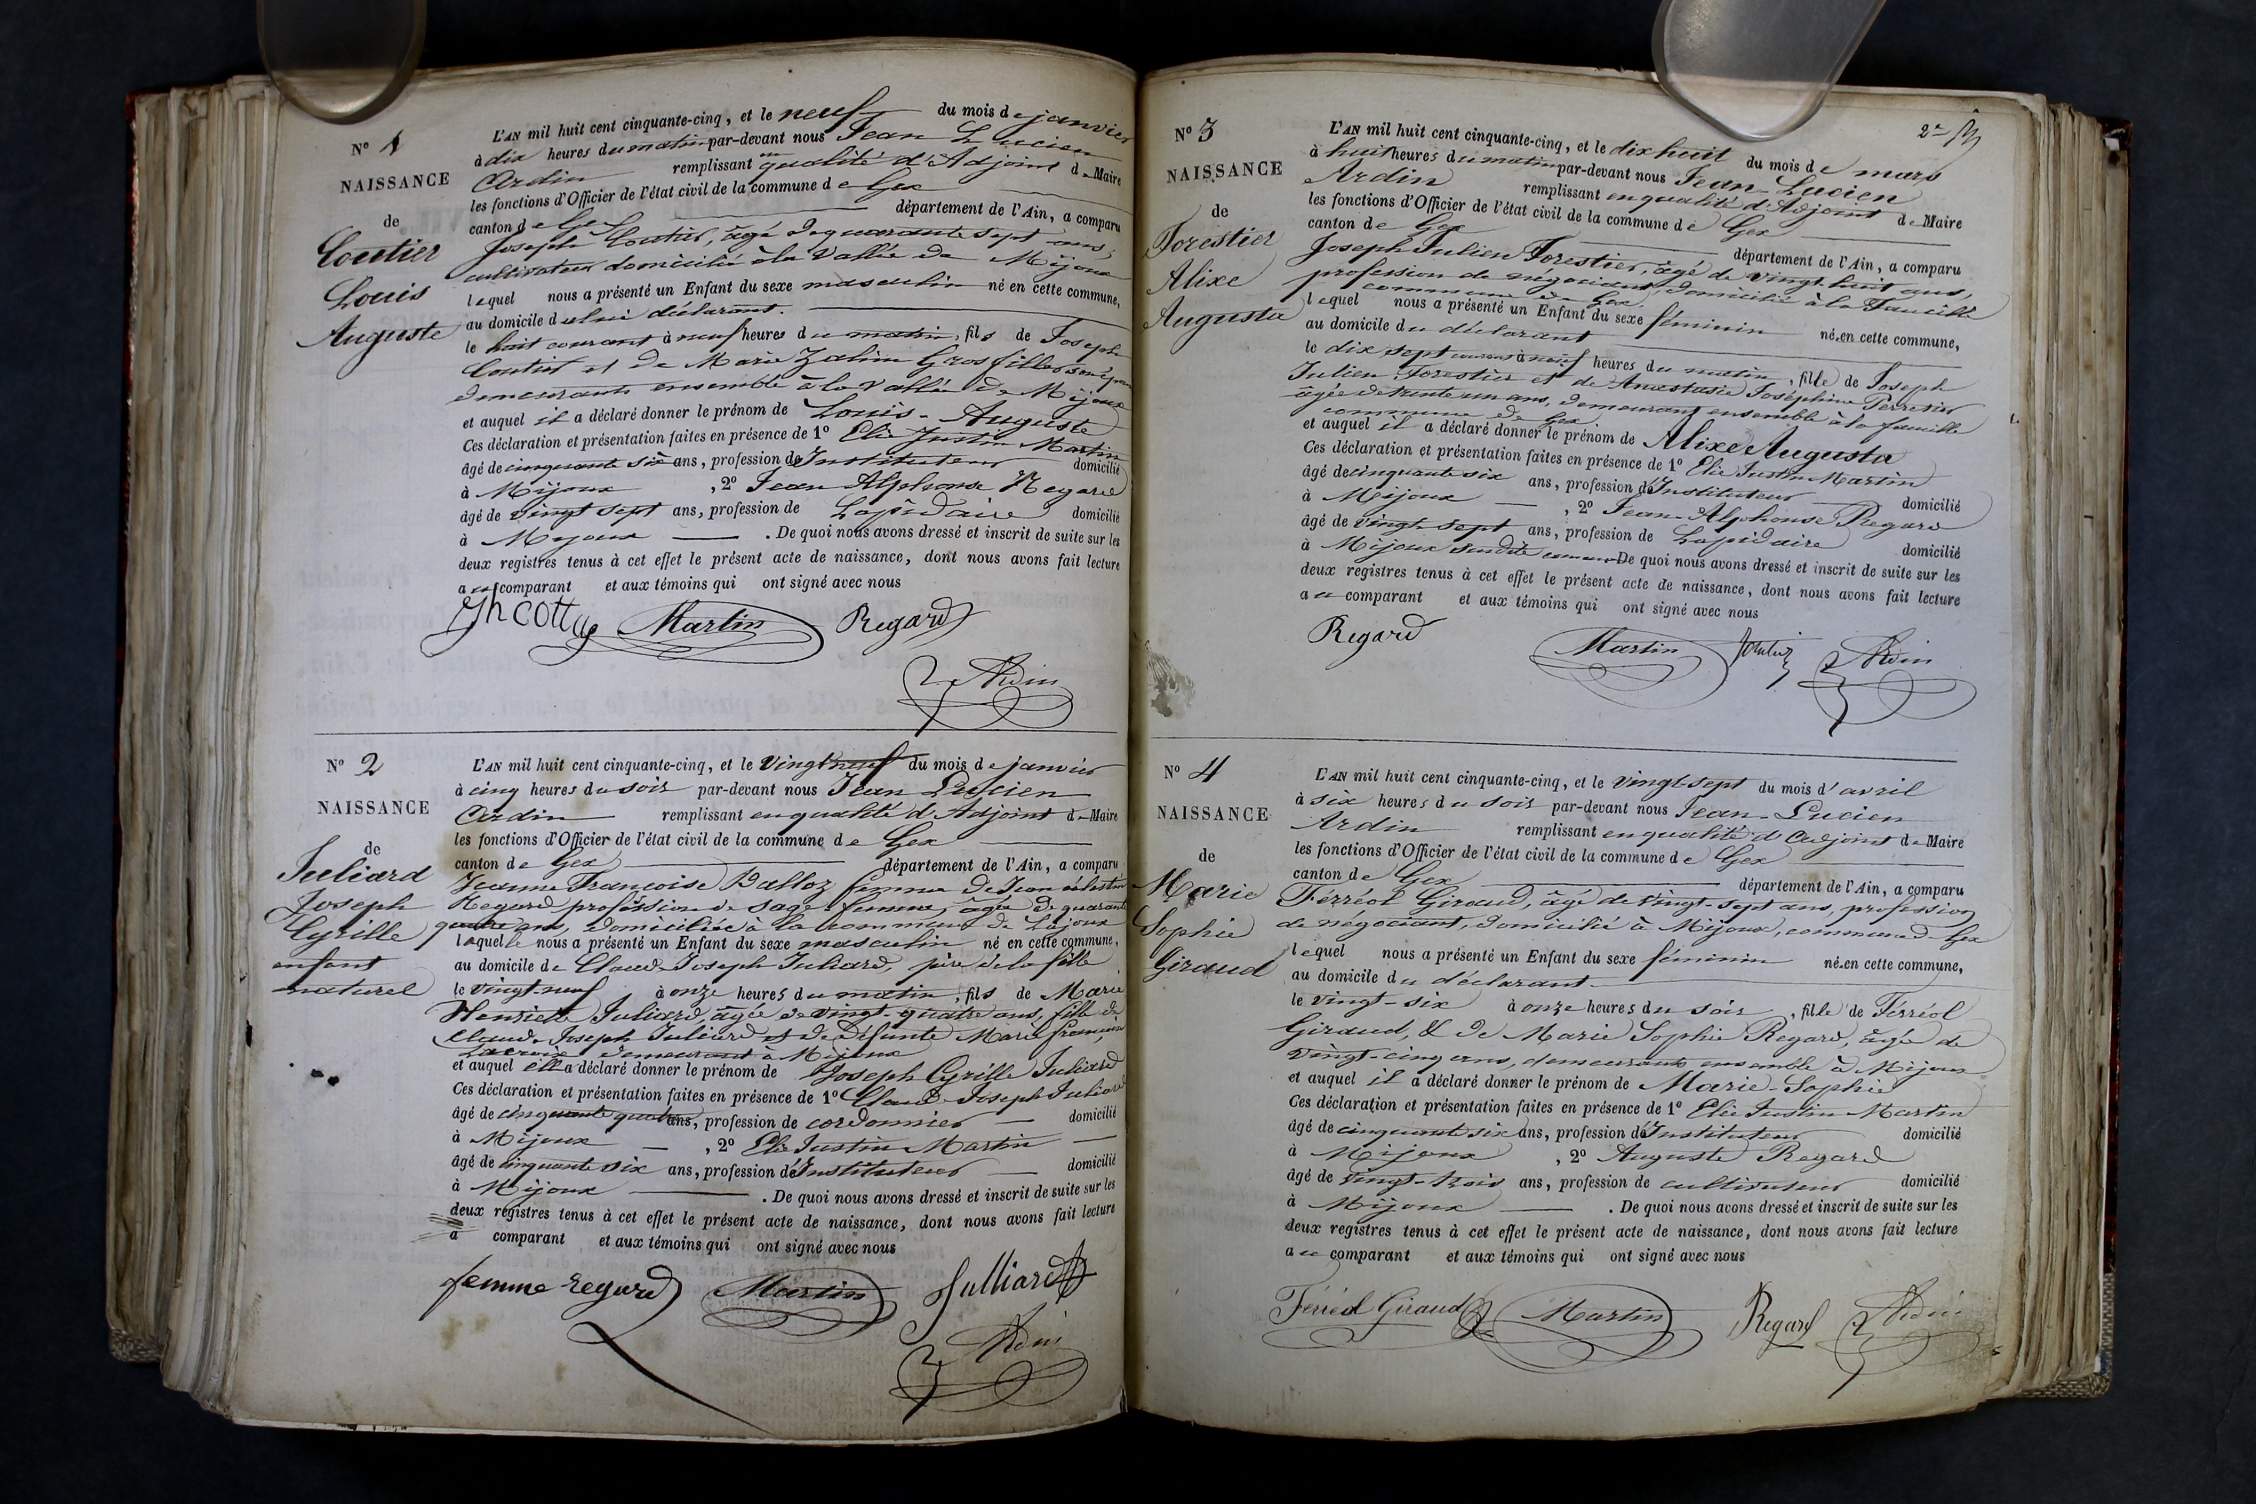 N° 1
NAISSANCE
de
Coutier
Louis
Auguste
L'AN mil huit cent cinquante-cinq, et le neuf du mois de janvier
à dix heures du matin par-devant nous Jean Lucien
Ardin remplissant en qualité d'Adjoint de Maire
les fonctions d'Officier de l'état civil de la commune de Gex
canton de Gex département de l'Ain, a comparu
Joseph Coutier, âgé de quarante sept ans,
cultivateur domicilié à la Vallée de Mijoux
lequel nous a présenté un Enfant du sexe masculin né en cette commune,
au domicile du déclarant.
le huit courant à neuf heures du matin, fils de Joseph
Coutier et de Marie Zaline Grosfilley son épouse
demeurants ensemble à la Vallée de Mijoux
et auquel il a déclaré donner le prénom de Louis-Auguste
Ces déclaration et présentation faites en présence de 1° Elie Justin Martin
âgé de cinquante six ans, profession d'Instituteur domicilié
à Mijoux, 2° Jean Alphonse Regard
âgé de vingt sept ans, profession de Lapidaire domicilié
à Mijoux. De quoi nous avons dressé et inscrit de suite sur les
deux registres tenus à cet effet le présent acte de naissance, dont nous avons fait lecture
au comparant et aux témoins qui ont signé avec nous
Martin Regard
Ardin
N° 2
NAISSANCE
de
Juliard
Joseph
Cyrille
enfant
naturel
L'AN mil huit cent cinquante-cinq, et le vingt neuf du mois de janvier
à cinq heures du soir par-devant nous Jean Lucien
Ardin remplissant en qualité d'Adjoint de Maire
les fonctions d'Officier de l'état civil de la commune de Gex
canton de Gex département de l'Ain, a comparu
Jeanne Françoise Balloz femme de Jean célestin
Regard profession de sage-femme, âgée de quarante
quatre ans, domiciliée à la commune de Lajoux
laquelle nous a présenté un Enfant du sexe masculin né en cette commune,
au domicile de Claude-Joseph Juliard, père de la fille
le vingt-neuf à onze heures du matin, fils de Marie
Henriette Juliard, âgée de vingt-quatre ans, fille de
Claude Joseph Juliard et de Défunte Marie françoise
Lacroix demeurant à Mijoux
et auquel elle a déclaré donner le prénom de Joseph Cyrille Juliard
Ces déclaration et présentation faites en présence de 1° Claude-Joseph Juliard
âgé de cinquante quatre ans, profession de cordonnier domicilié
à Mijoux, 2° Elie Justin Martin
âgé de cinquante six ans, profession d'Instituteur domicilié
à Mijoux. De quoi nous avons dressé et inscrit de suite sur les
deux registres tenus à cet effet le présent acte de naissance, dont nous avons fait lecture
a comparant et aux témoins qui ont signé avec nous
femme regard Martin Julliard
Ardin
2
N° 3
NAISSANCE
de
Forestier
Alixe
Augusta
L'AN mil huit cent cinquante-cinq, et le dix huit du mois de mars
à huit heures du matin par-devant nous Jean-Lucien
Ardin remplissant en qualité d'Adjoint de Maire
les fonctions d'Officier de l'état civil de la commune de Gex
canton de Gex département de l'Ain, a comparu
Joseph Julien Forestier, âgé de vingt huit ans,
profession de négociant, domicilié à la Faucille
commune de Gex
lequel nous a présenté un Enfant du sexe féminin née en cette commune,
au domicile du déclarant
le dix sept courant à neuf heures du matin, fille de Joseph
Julien Forestier et de Anastasie Joséphine Perresin
âgée de trente un ans, demeurant ensemble à la faucille
commune de Gex
et auquel il a déclaré donner le prénom de Alixe Augusta
Ces déclaration et présentation faites en présence de 1° Elie Justin Martin
âgé de cinquante six ans, profession d'Instituteur domicilié
à Mijoux, 2° Jean-Alphonse Regard
âgé de vingt sept ans, profession de Lapidaire domicilié
à Mijoux susdite commune De quoi nous avons dressé et inscrit de suite sur les
deux registres tenus à cet effet le présent acte de naissance, dont nous avons fait lecture
au comparant et aux témoins qui ont signé avec nous
Regard Martin Ardin
N° 4
NAISSANCE
de
Marie
Sophie
Giraud
L'AN mil huit cent cinquante-cinq, et le vingt-sept du mois d'avril
à six heures du soir par-devant nous Jean-Lucien
Ardin remplissant en qualité d'Adjoint de Maire
les fonctions d'Officier de l'état civil de la commune de Gex
canton de Gex département de l'Ain, a comparu
Férréol Giraud, âgé de vingt-sept ans, profession
de négociant, domicilié à Mijoux, commune de Gex
lequel nous a présenté un Enfant du sexe féminin née en cette commune,
au domicile du déclarant
le vingt-six à onze heures du soir, fille de Férréol
Giraud, & de Marie Sophie Regard, âgée de
vingt-cinq ans, demeurants ensemble à Mijoux
et auquel il a déclaré donner le prénom de Marie-Sophie
Ces déclaration et présentation faites en présence de 1° Elie Justin Martin
âgé de cinquante six ans, profession d'Instituteur domicilié
à Mijoux, 2° Auguste Regard
âgé de vingt-trois ans, profession de cultivateur domicilié
à Mijoux. De quoi nous avons dressé et inscrit de suite sur les
deux registres tenus à cet effet le présent acte de naissance, dont nous avons fait lecture
au comparant et aux témoins qui ont signé avec nous
Férréol Giraud Martin Regard Ardin